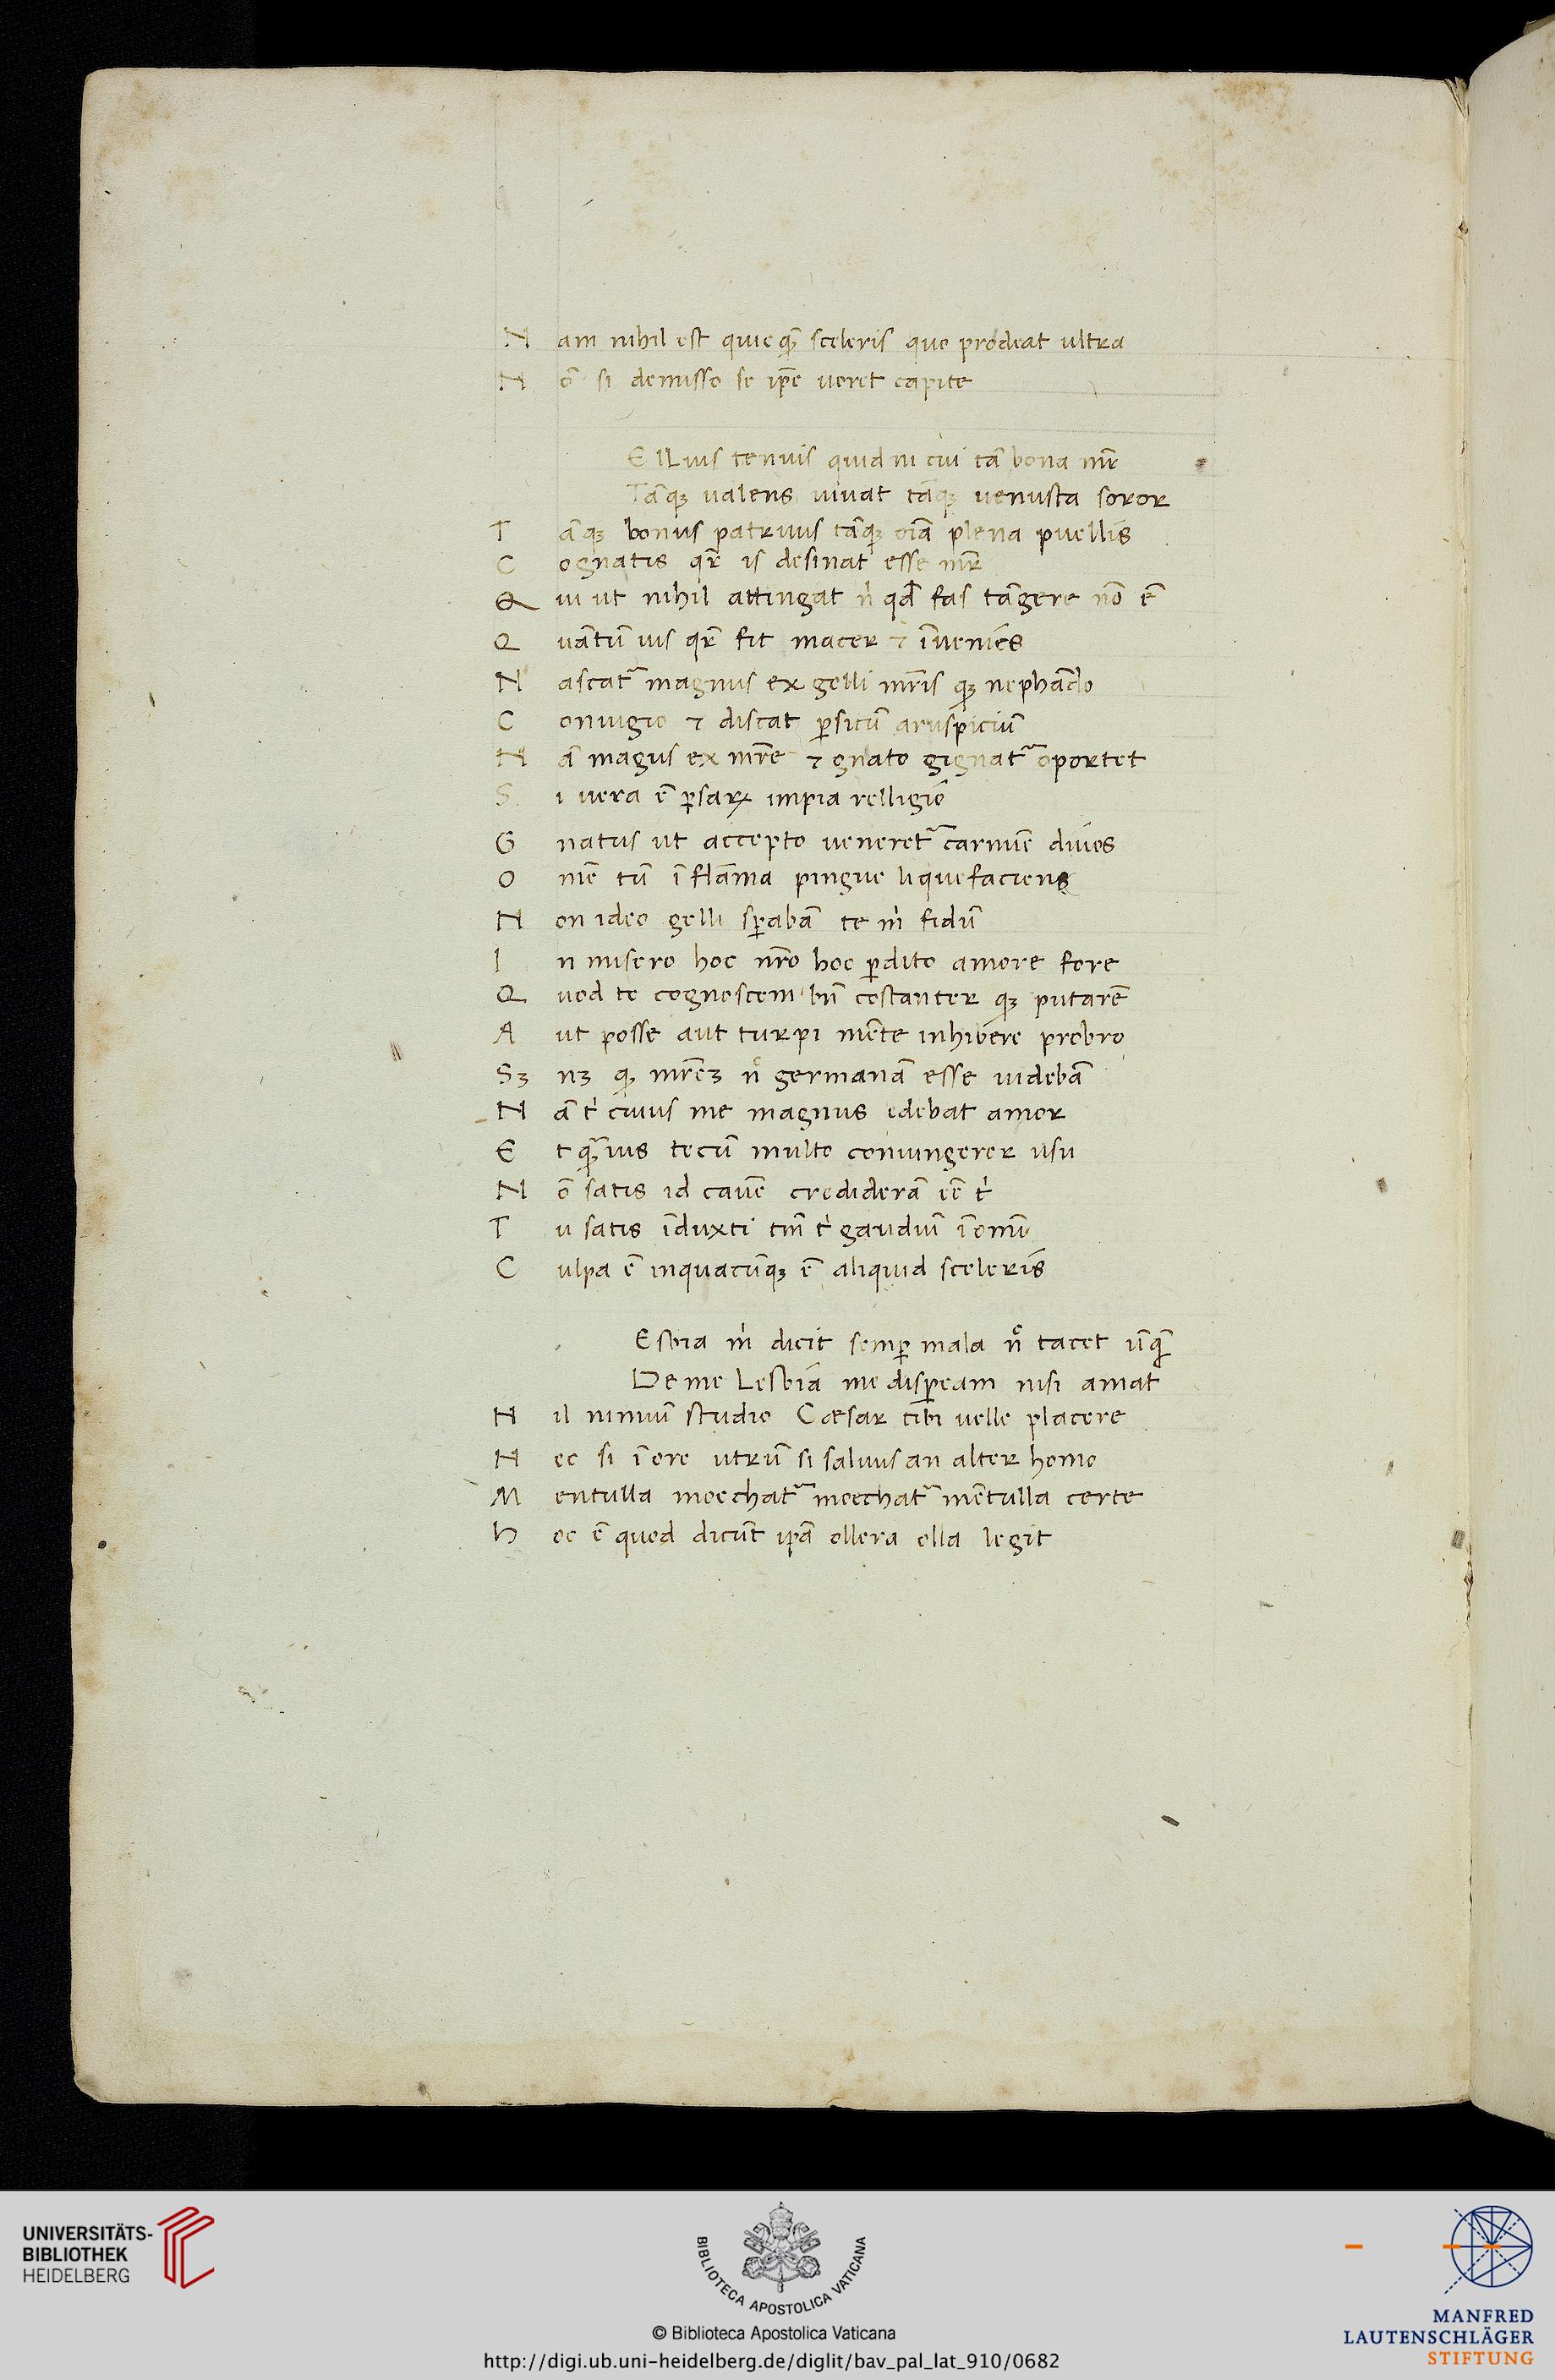 N am nihil est quicq̄ sceleris quo prodeat ultra
N ō si demisso se ip̄e voret capite
Ellius tenuis quid ni cui tā bona mr̄
Tāqꝫ valens vivat tāqꝫ venusta soror
T āqꝫ bonus patruus tāqꝫ oīa plena puellis
C ognatis qr̄ is desinat esse mr̄
Q ui ut nihil attingat n̓ qd̄ fas tāgere nō ē
Q vātū vis qr̄ fit macer ⁊ īvenies
N ascat᷑ magnus ex gelli mr̄is qꝫ nephādo
C oniugio ⁊ discat ꝑsicū aruspiciū
N ā magus ex mr̄e ⁊ gnato gignat᷑ oportet
S i vera ē ꝑsaꝝ impia relligio
G natus ut accepto veneret᷑ carmīe dives
O mē tū ī flāma pingue liquefaciens
N on ideo gelli sꝑabā te m̓ fidū
I n misero hoc nr̄o hoc ꝑdito amore fore
Q vod te cognoscem bn̄ cōstanter qꝫ putarē
A ut posse aut turpi mēte inhibere probro
Sꝫ nꝫ qꝫ mr̄eꝫ n̊ germanā esse videbā
N ā t̓ cuius me magnus edebat amor
E t q̄vis tecū multo coniungerer usu
N ō satis id cavē credideram eē t̓
T u satis īduxti tm̄ t̓ gaudiū ī omni
C ulpa ē inquacūqꝫ ē aliquid sceleris
Esbia m̓ dicit semꝑ mala n̊ tacet ūq̄
De me Lesbia me dispeream nisi amat
N il nimiū studio Cæsar tibi velle placere
N ec si ī ore utrū si salvus an alter homo
M entulla moechat᷑ moechat᷑ mētulla certe
H oc ē quod dicūt ip̄ā ollera olla legit
UNIVERSITÄTS-
BIBLIOTHEK
HEIDELBERG
BIBLIOTECA APOSTOLICA VATICANA
© Biblioteca Apostolica Vaticana
http://digi.ub.uni-heidelberg.de/diglit/bav_pal_lat_910/0682
MANFRED
LAUTENSCHLÄGER
STIFTUNG